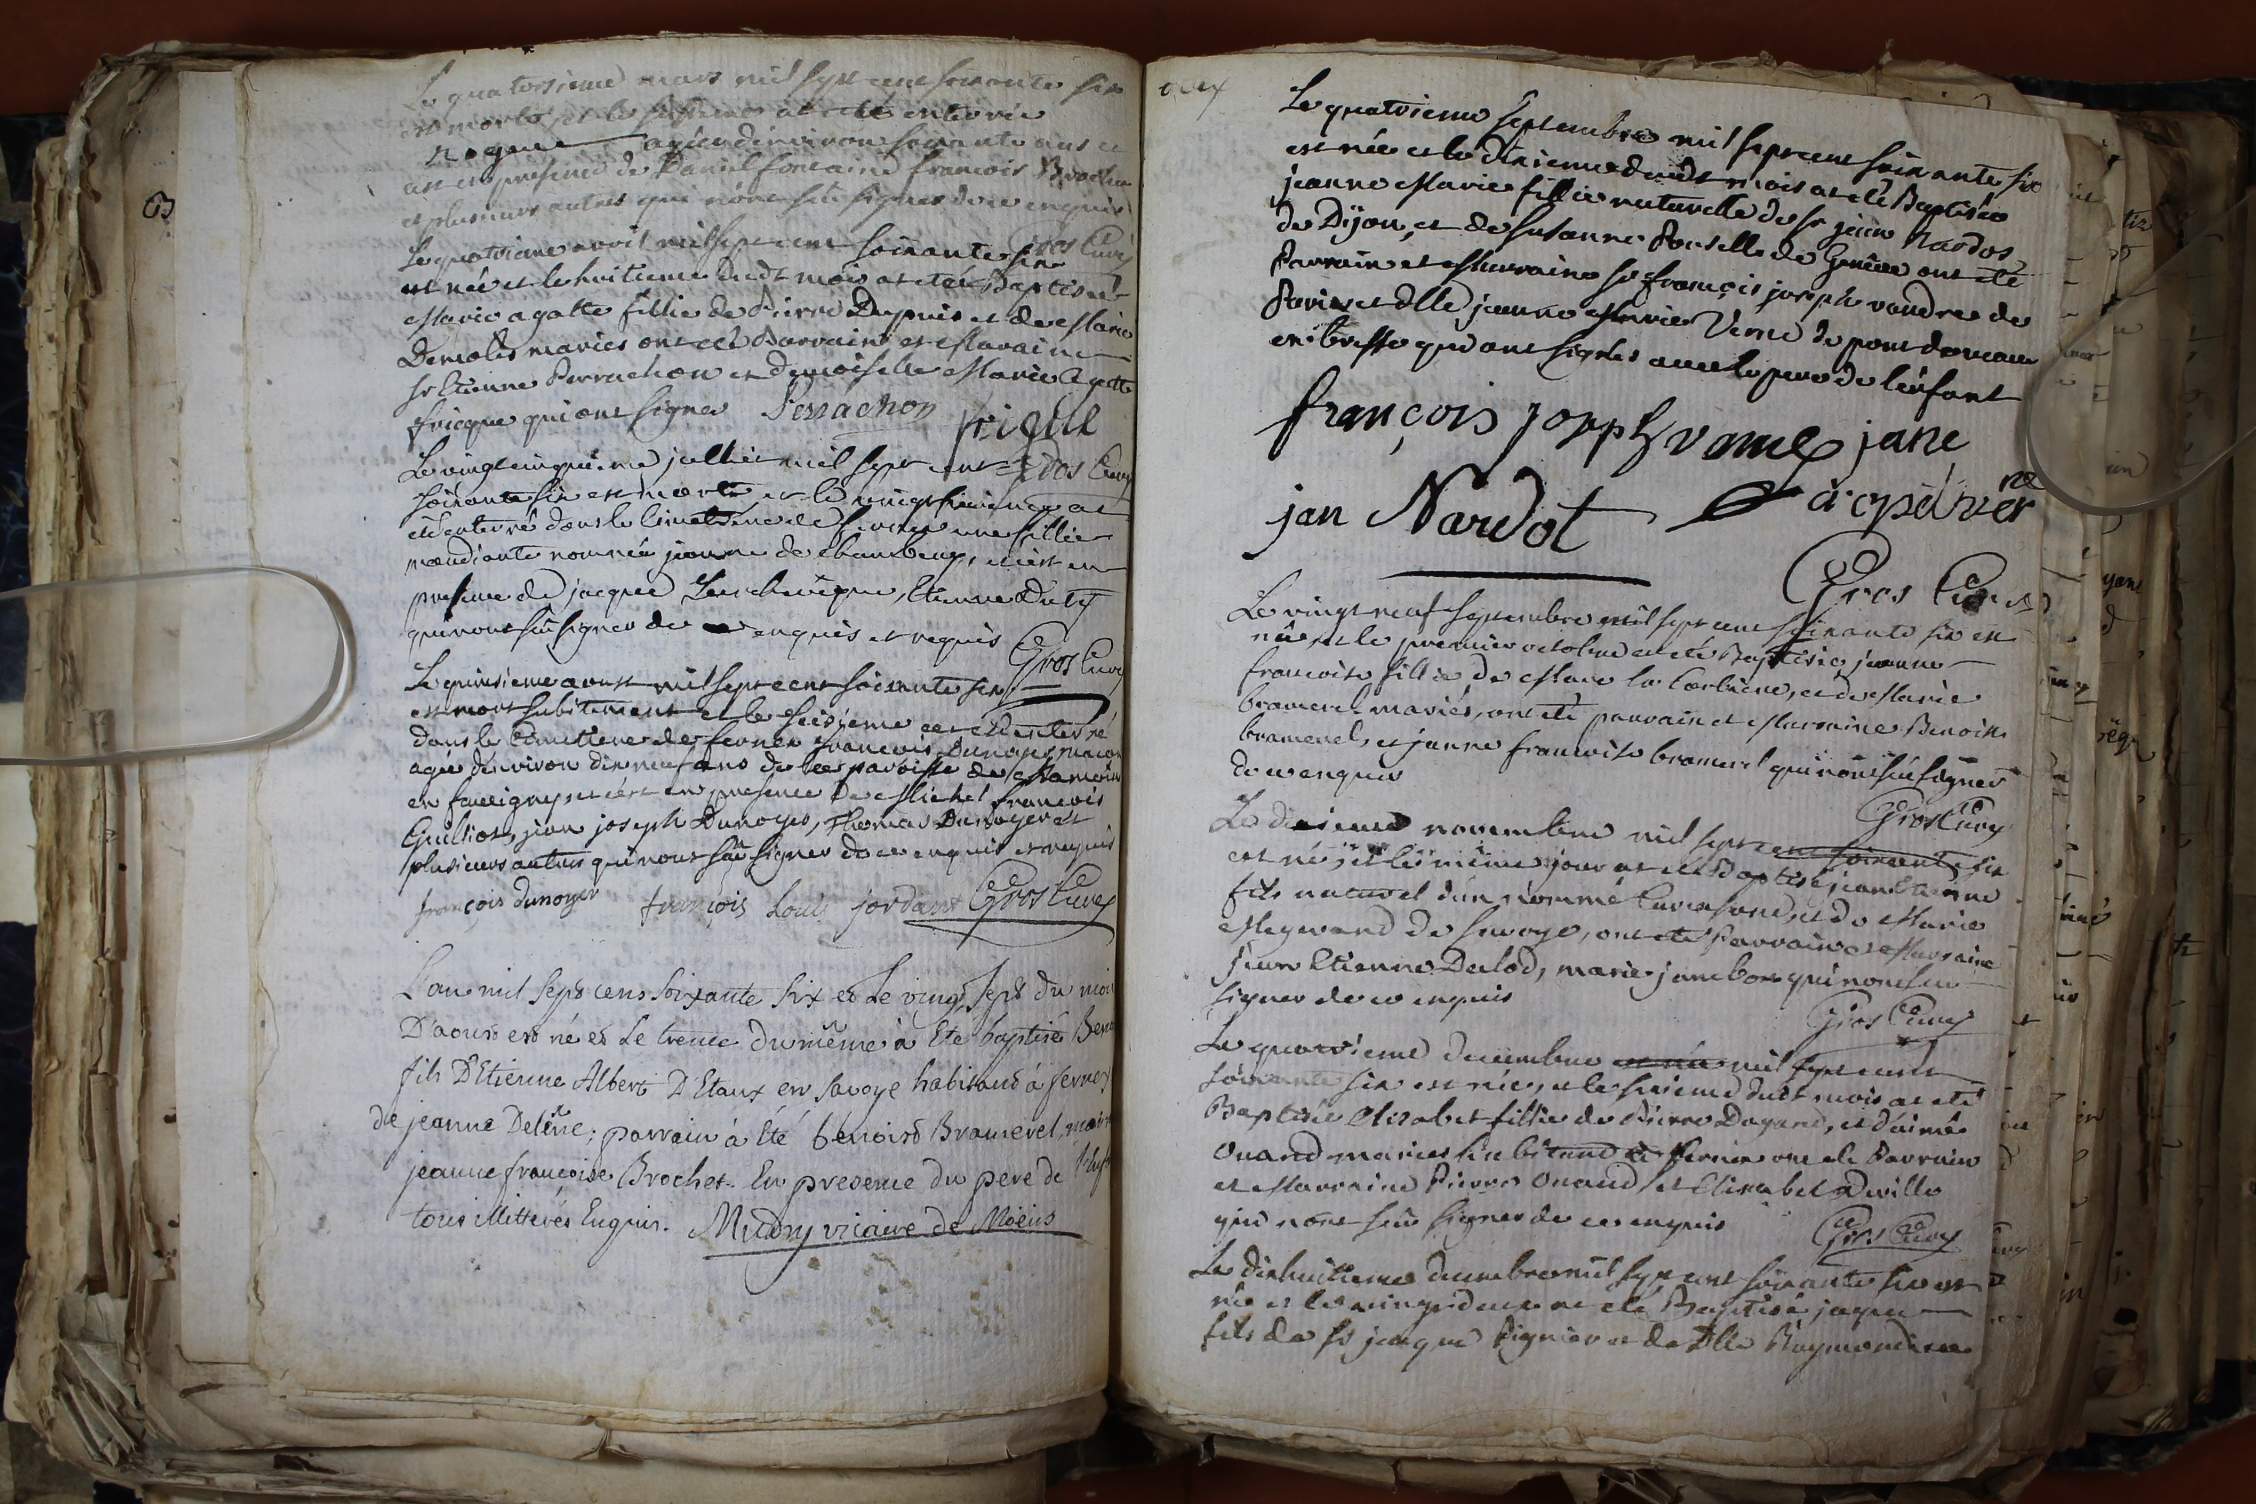 Le quatorsieme mars mil sept cent soixante six
est morte et le quinsieme at été enterrée
agée d'environ soixante ans et
cest en presence de Daniel fontaine francois Brochu
et plusieurs autres qui n'ont sçu signer de ce enquis
Gros Curé
Le quatrieme avril mil sept cent soixante six
est née et le huitieme dudt mois at eté Baptisée
Marie agatte fillie de Pierre Dupuis et de Marie
Demolis mariés ont eté Parrain et Maraine
sr Etienne Perrachon et demoiselle Marie Agatte
fricque qui ont signes Perrachon frique
Gros Curé
Le vingt cinquieme julliet mil sept cent
soixante six est morte et le vingt sixieme at
eté enterré dans le cimetiere de fernex une fillie
mandiante nommée jeanne de chambeux, et cest en
presence de jacque Leveque, Etienne Duty
qui n'ont sçu signer de ce enquis et requis
Gros Curé
Le quinsieme aoust mil sept cent soixante six
est mort subitement et le seisieme at eté enterré
dans le cimetiere de fernex francois Dunoyer macon
agée d'environ dix neuf ans de la paroisse de Samoin
en faucigny et cest en presence de Michel francois
Gulliot, jean joseph Dunoyer, Thomas Dunoyer et
plusieurs autres qui n'ont sçu signer de ce enquis et requis
françois dunoyer françois Louis jordant Gros Curé
L'an mil sept cens soixante six et Le vingt sept du mois
D'aoust est né et Le trente du même à Eté baptisé Beno
fils D'Etienne Albert D'Etaux en Savoye habitant à fernex
de jeanne Deléne; parrain à Eté bénoist Bramerel, marr
jeanne francoise Brochet. En presence du pere de l'Enf
tous illitterés Enquis. Mudry vicaire de Moëns
Le quatrieme septembre mil sept cent soixante six
est née et le dixieme dudt mois at eté Baptisée
jeanne Marie fillie naturelle de sr jean Nardos
de Dijon, et de susanne Rousselle de Genève ont eté
Parrain et Marraine sr françois joseph vandrer de
Paris et dlle jeanne Marie Verne de pont de veaux
en bresse qui ont signés avec le pere de l'enfant
françois joseph vame jane
jan Nardot
Gros Curé
Le vingt neuf septembre mil sept cent soixante six est
née, et le premier octobre at eté Baptisée jeanne
francoise fillie de Marc la Corbiere, et de Marie
bramerel mariés, ont eté parrain et Marraine Benoit
bramerel, et janne francoise bramerel qui n'ont sçu signer
de ce enquis
Gros Curé
Le dixieme novembre mil sept cent soixante six
est né, et le même jour at eté Baptisé jean Etienne
fils naturel d'un nommé Carcasone, et de Marie
Megevand de savoye, ont eté Parrain et Marraine
jean Etienne Duclod, marie jambon qui n'ont sçu
signer de ce enquis
Gros Curé
Le quatrieme decembre est née mil sept cent
soixante six est née, et le sixieme dudt mois at eté
Baptisée Elisabet fillie de Pierre Dagand, et d'aimée
Onand mariés habitant à fernex ont eté Parrain
et Marraine Pierre Onand et Elisabet Deville
qui n'ont sçu signer de ce enquis
Gros Curé
Le dixhuitieme decembre mil sept cent soixante six est
née et le vingt deux at eté Baptisé jaque
fils de sr jacque Pignier et de Dlle Raymondine